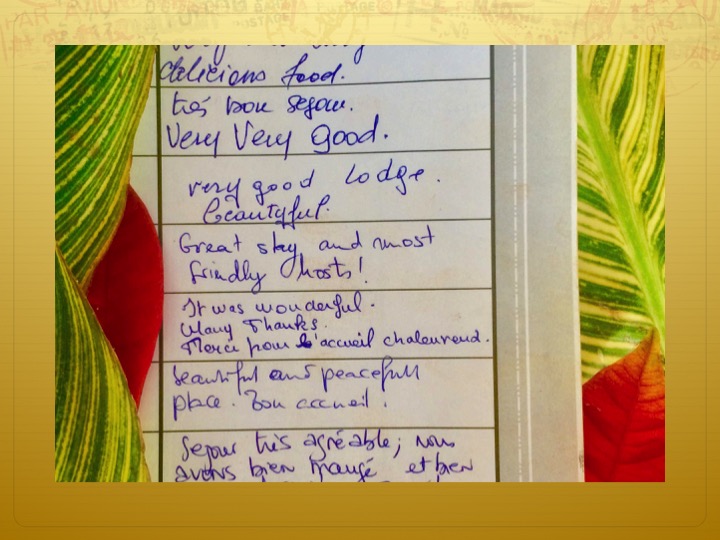 delicious food.
très bon sejour.
Very Very good.
very good lodge.
beautyful.
Great stay and most
frindly hosts!
It was wonderful.
Many Thanks.
Merci pour l'accueil chaleureux.
beautiful and peacefull
place. Bon accueil.
Sejour très agréable; nous
avons bien mangé et bien